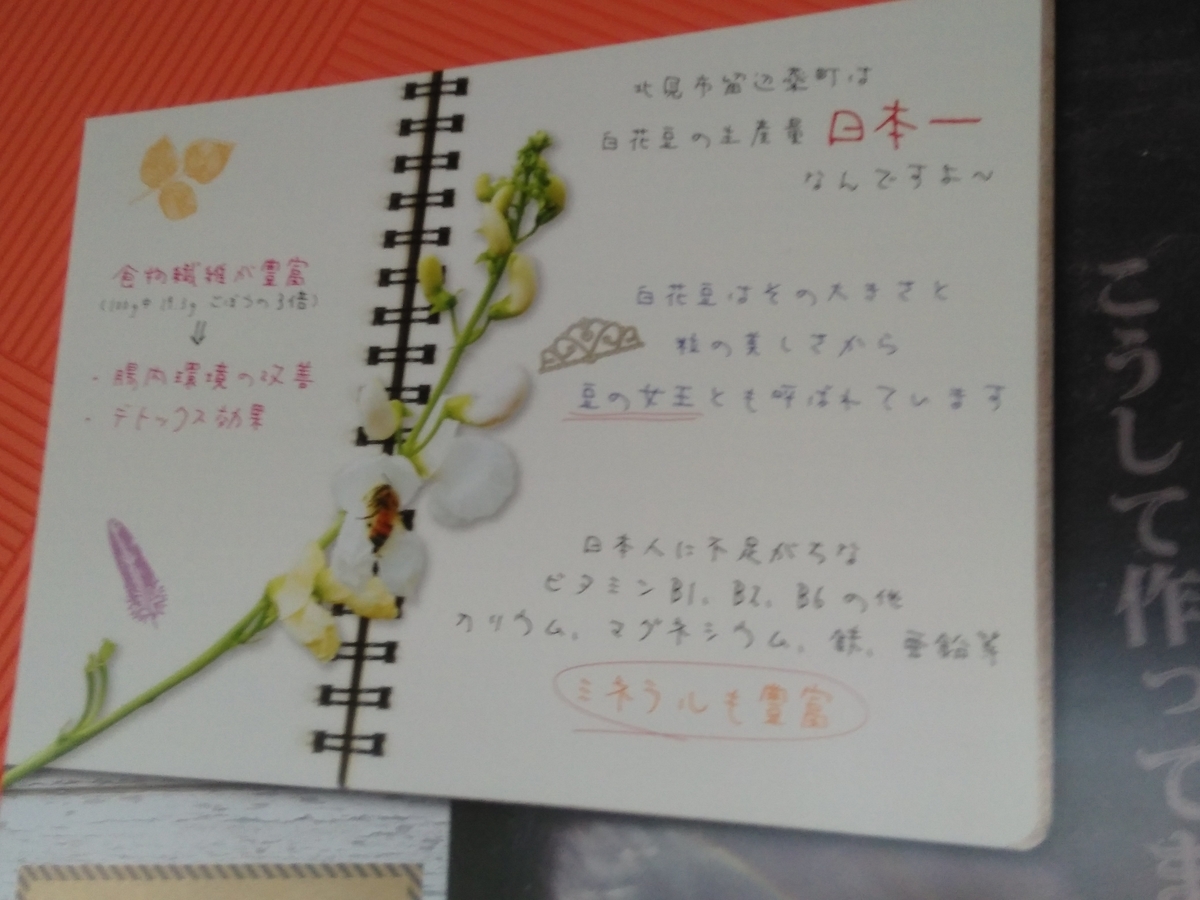 食物繊維が豊富
(100g中 19.3g ごぼうの3倍)
⇓
・腸内環境の改善
・デトックス効果
北見市留辺蘂町は
白花豆の生産量 日本一
なんですよ〜
白花豆はその大きさと
粒の美しさから
豆の女王とも呼ばれています
日本人に不足がちな
ビタミンB1、B2、B6の他
カリウム、マグネシウム、鉄、亜鉛等
ミネラルも豊富
こうして作って